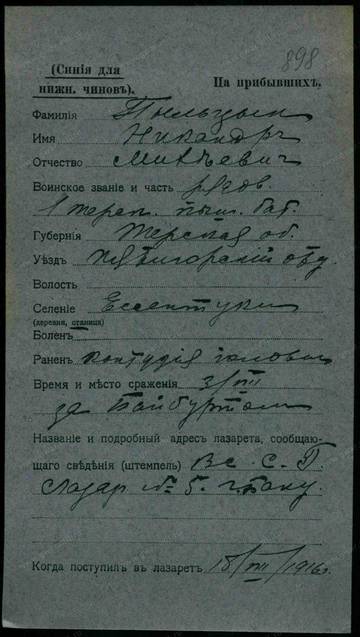 898
(Синія для
нижн. чиновъ).
На прибывшихъ.
Фамилія Пыльцын
Имя Никандръ
Отчество Матвѣевич
Воинское званіе и часть рядов.
1 терск. пласт. бат.
Губернія Терская об.
Уѣздъ Пятигорскій отд.
Волость
Селеніе Ессентуки
(деревня, станица)
Боленъ
Раненъ контузія головы
Время и мѣсто сраженія 3/VII
за Байбуртом
Названіе и подробный адресъ лазарета, сообщаю-
щаго свѣдѣнія (штемпель) Вс. С. Г.
Лазар № 5. г. Баку.
Когда поступилъ въ лазаретъ 18/VII/1916 г.